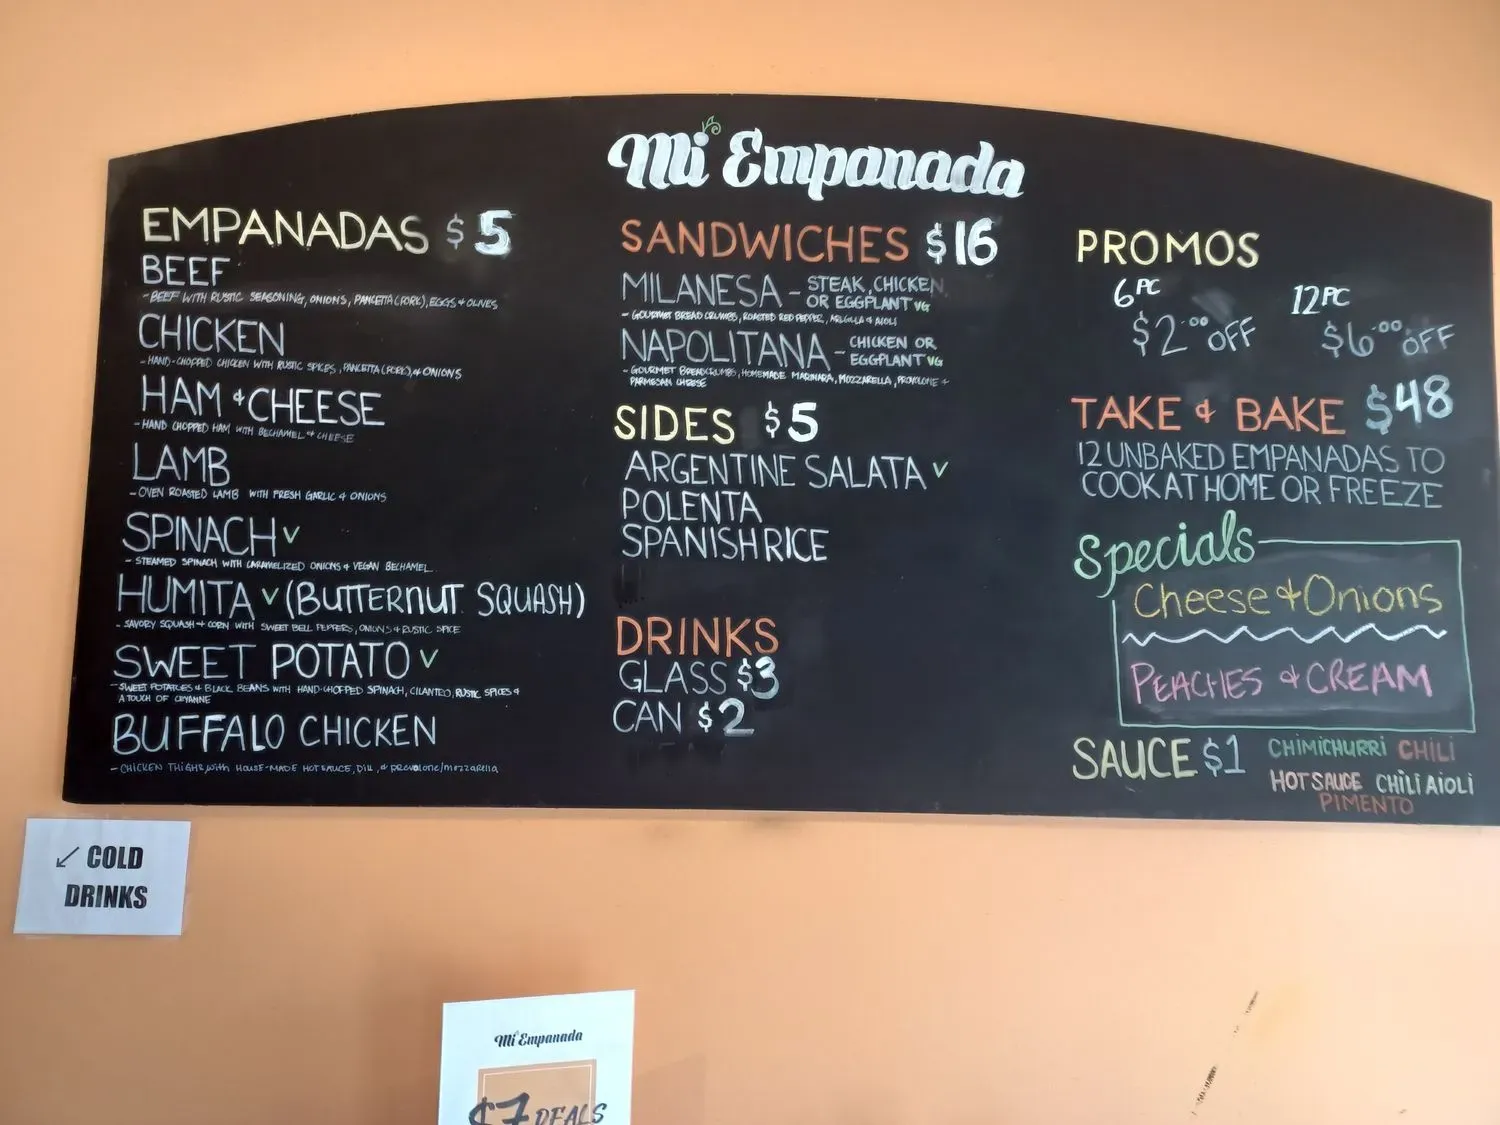 Mi Empanada
EMPANADAS $5
BEEF
- BEEF WITH RUSTIC SEASONING, ONIONS, PANCETTA (PORK), EGGS & OLIVES
CHICKEN
- HAND-CHOPPED CHICKEN WITH RUSTIC SPICES, PANCETTA (PORK), & ONIONS
HAM & CHEESE
- HAND CHOPPED HAM WITH BECHAMEL & CHEESE
LAMB
- OVEN ROASTED LAMB WITH FRESH GARLIC & ONIONS
SPINACH V
- STEAMED SPINACH WITH CARAMELIZED ONIONS & VEGAN BECHAMEL
HUMITA V (BUTTERNUT SQUASH)
- SAVORY SQUASH & CORN WITH SWEET BELL PEPPERS, ONIONS & RUSTIC SPICE
SWEET POTATO V
- SWEET POTATOES & BLACK BEANS WITH HAND-CHOPPED SPINACH, CILANTRO, RUSTIC SPICES &
A TOUCH OF CAYANNE
BUFFALO CHICKEN
- CHICKEN THIGHS with HOUSE-MADE HOT SAUCE, Dill, & provolone/mozzarella
SANDWICHES $16
MILANESA - STEAK, CHICKEN
OR EGGPLANT VG
- GOURMET BREAD CRUMBS, ROASTED RED PEPPER, ARUGULA & AIOLI
NAPOLITANA - CHICKEN OR
EGGPLANT VG
- GOURMET BREADCRUMBS, HOMEMADE MARINARA, MOZZARELLA, PROVOLONE +
PARMESAN CHEESE
SIDES $5
ARGENTINE SALATA V
POLENTA
SPANISH RICE
DRINKS
GLASS $3
CAN $2
PROMOS
6PC
$2.00 OFF
12PC
$6.00 OFF
TAKE & BAKE $48
12 UNBAKED EMPANADAS TO
COOK AT HOME OR FREEZE
Specials
Cheese & Onions
PEACHES & CREAM
SAUCE $1
CHIMICHURRI CHILI
HOT SAUCE CHILI AIOLI
PIMENTO
↙ COLD
DRINKS
Mi Empanada
$7 DEALS